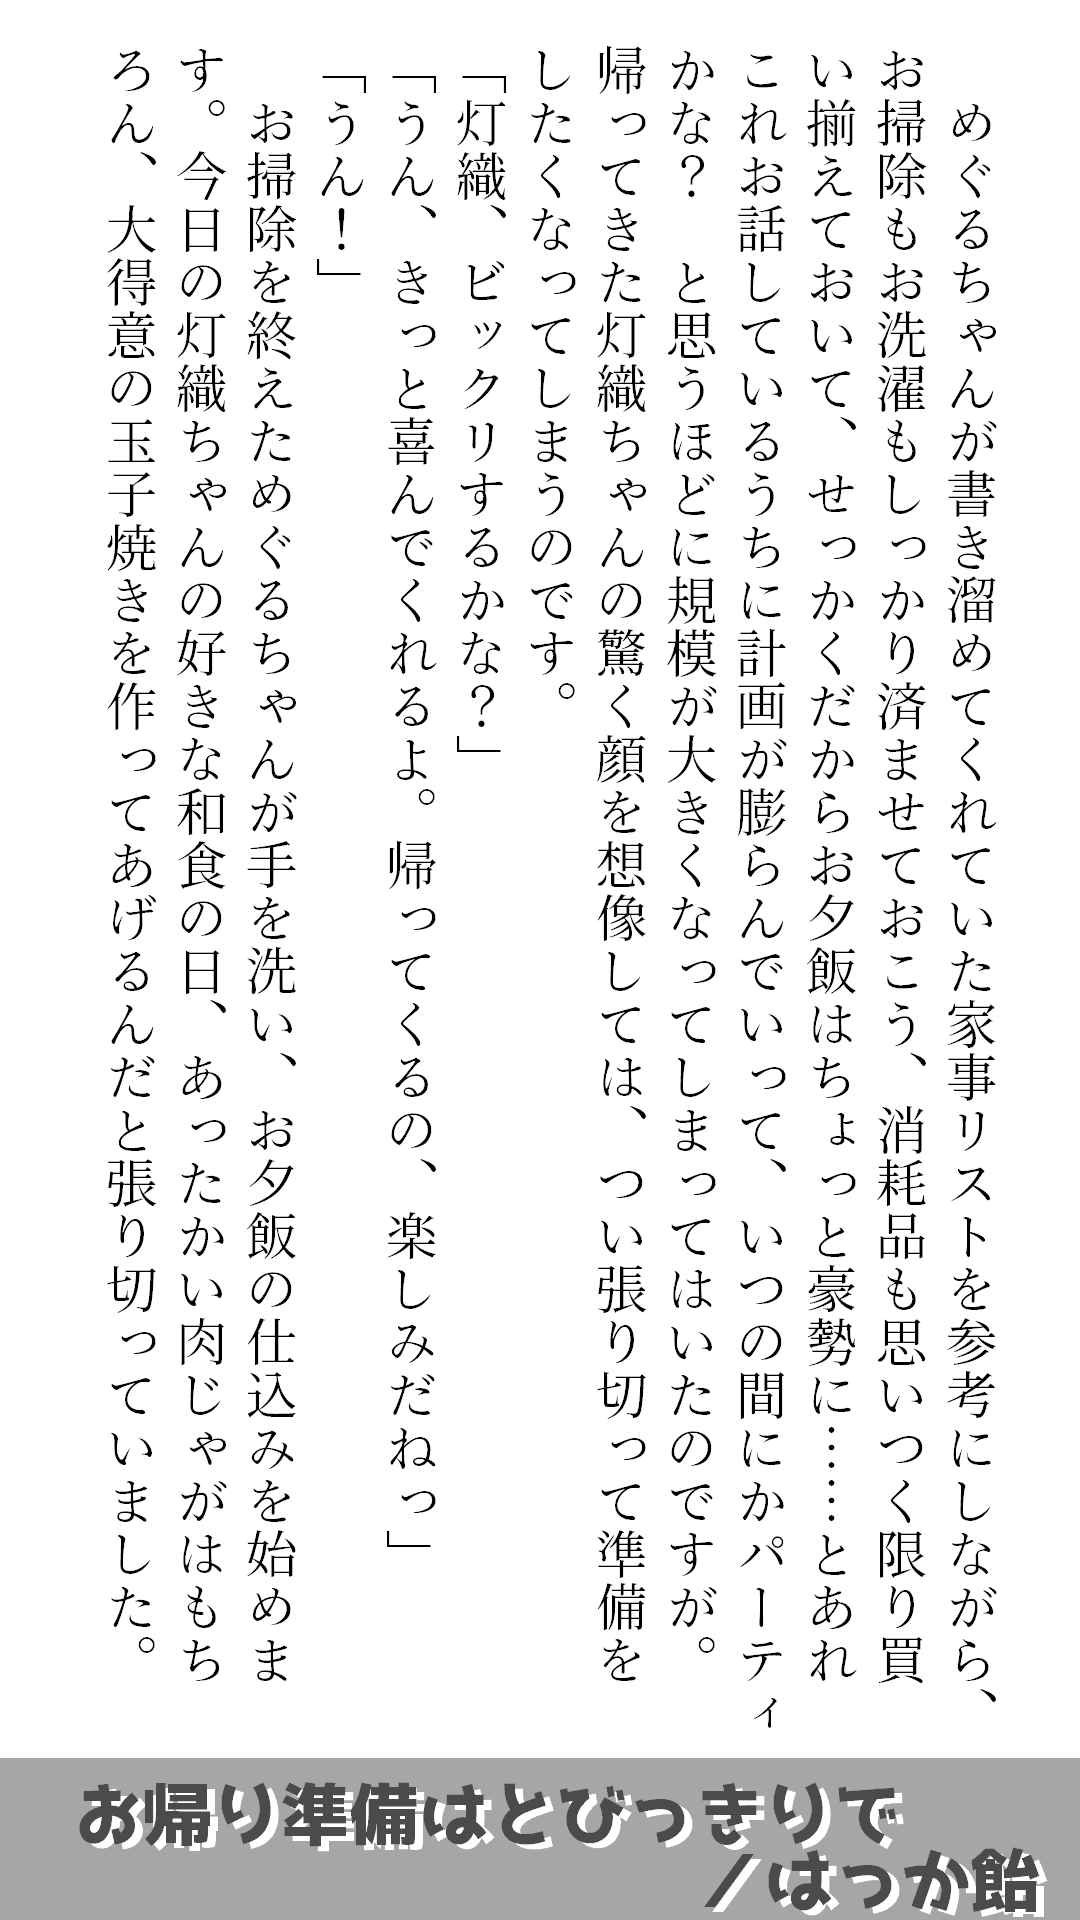 めぐるちゃんが書き溜めてくれていた家事リストを参考にしながら、
お掃除もお洗濯もしっかり済ませておこう、消耗品も思いつく限り買
い揃えておいて、せっかくだからお夕飯はちょっと豪勢に……とあれ
これお話しているうちに計画が膨らんでいって、いつの間にかパーティ
かな？　と思うほどに規模が大きくなってしまってはいたのですが。
帰ってきた灯織ちゃんの驚く顔を想像しては、つい張り切って準備を
したくなってしまうのです。
「灯織、ビックリするかな？」
「うん、きっと喜んでくれるよ。帰ってくるの、楽しみだねっ」
「うん！」
　お掃除を終えためぐるちゃんが手を洗い、お夕飯の仕込みを始めま
す。今日の灯織ちゃんの好きな和食の日、あったかい肉じゃがはもち
ろん、大得意の玉子焼きを作ってあげるんだと張り切っていました。
お帰り準備はとびっきりで
／はっか飴